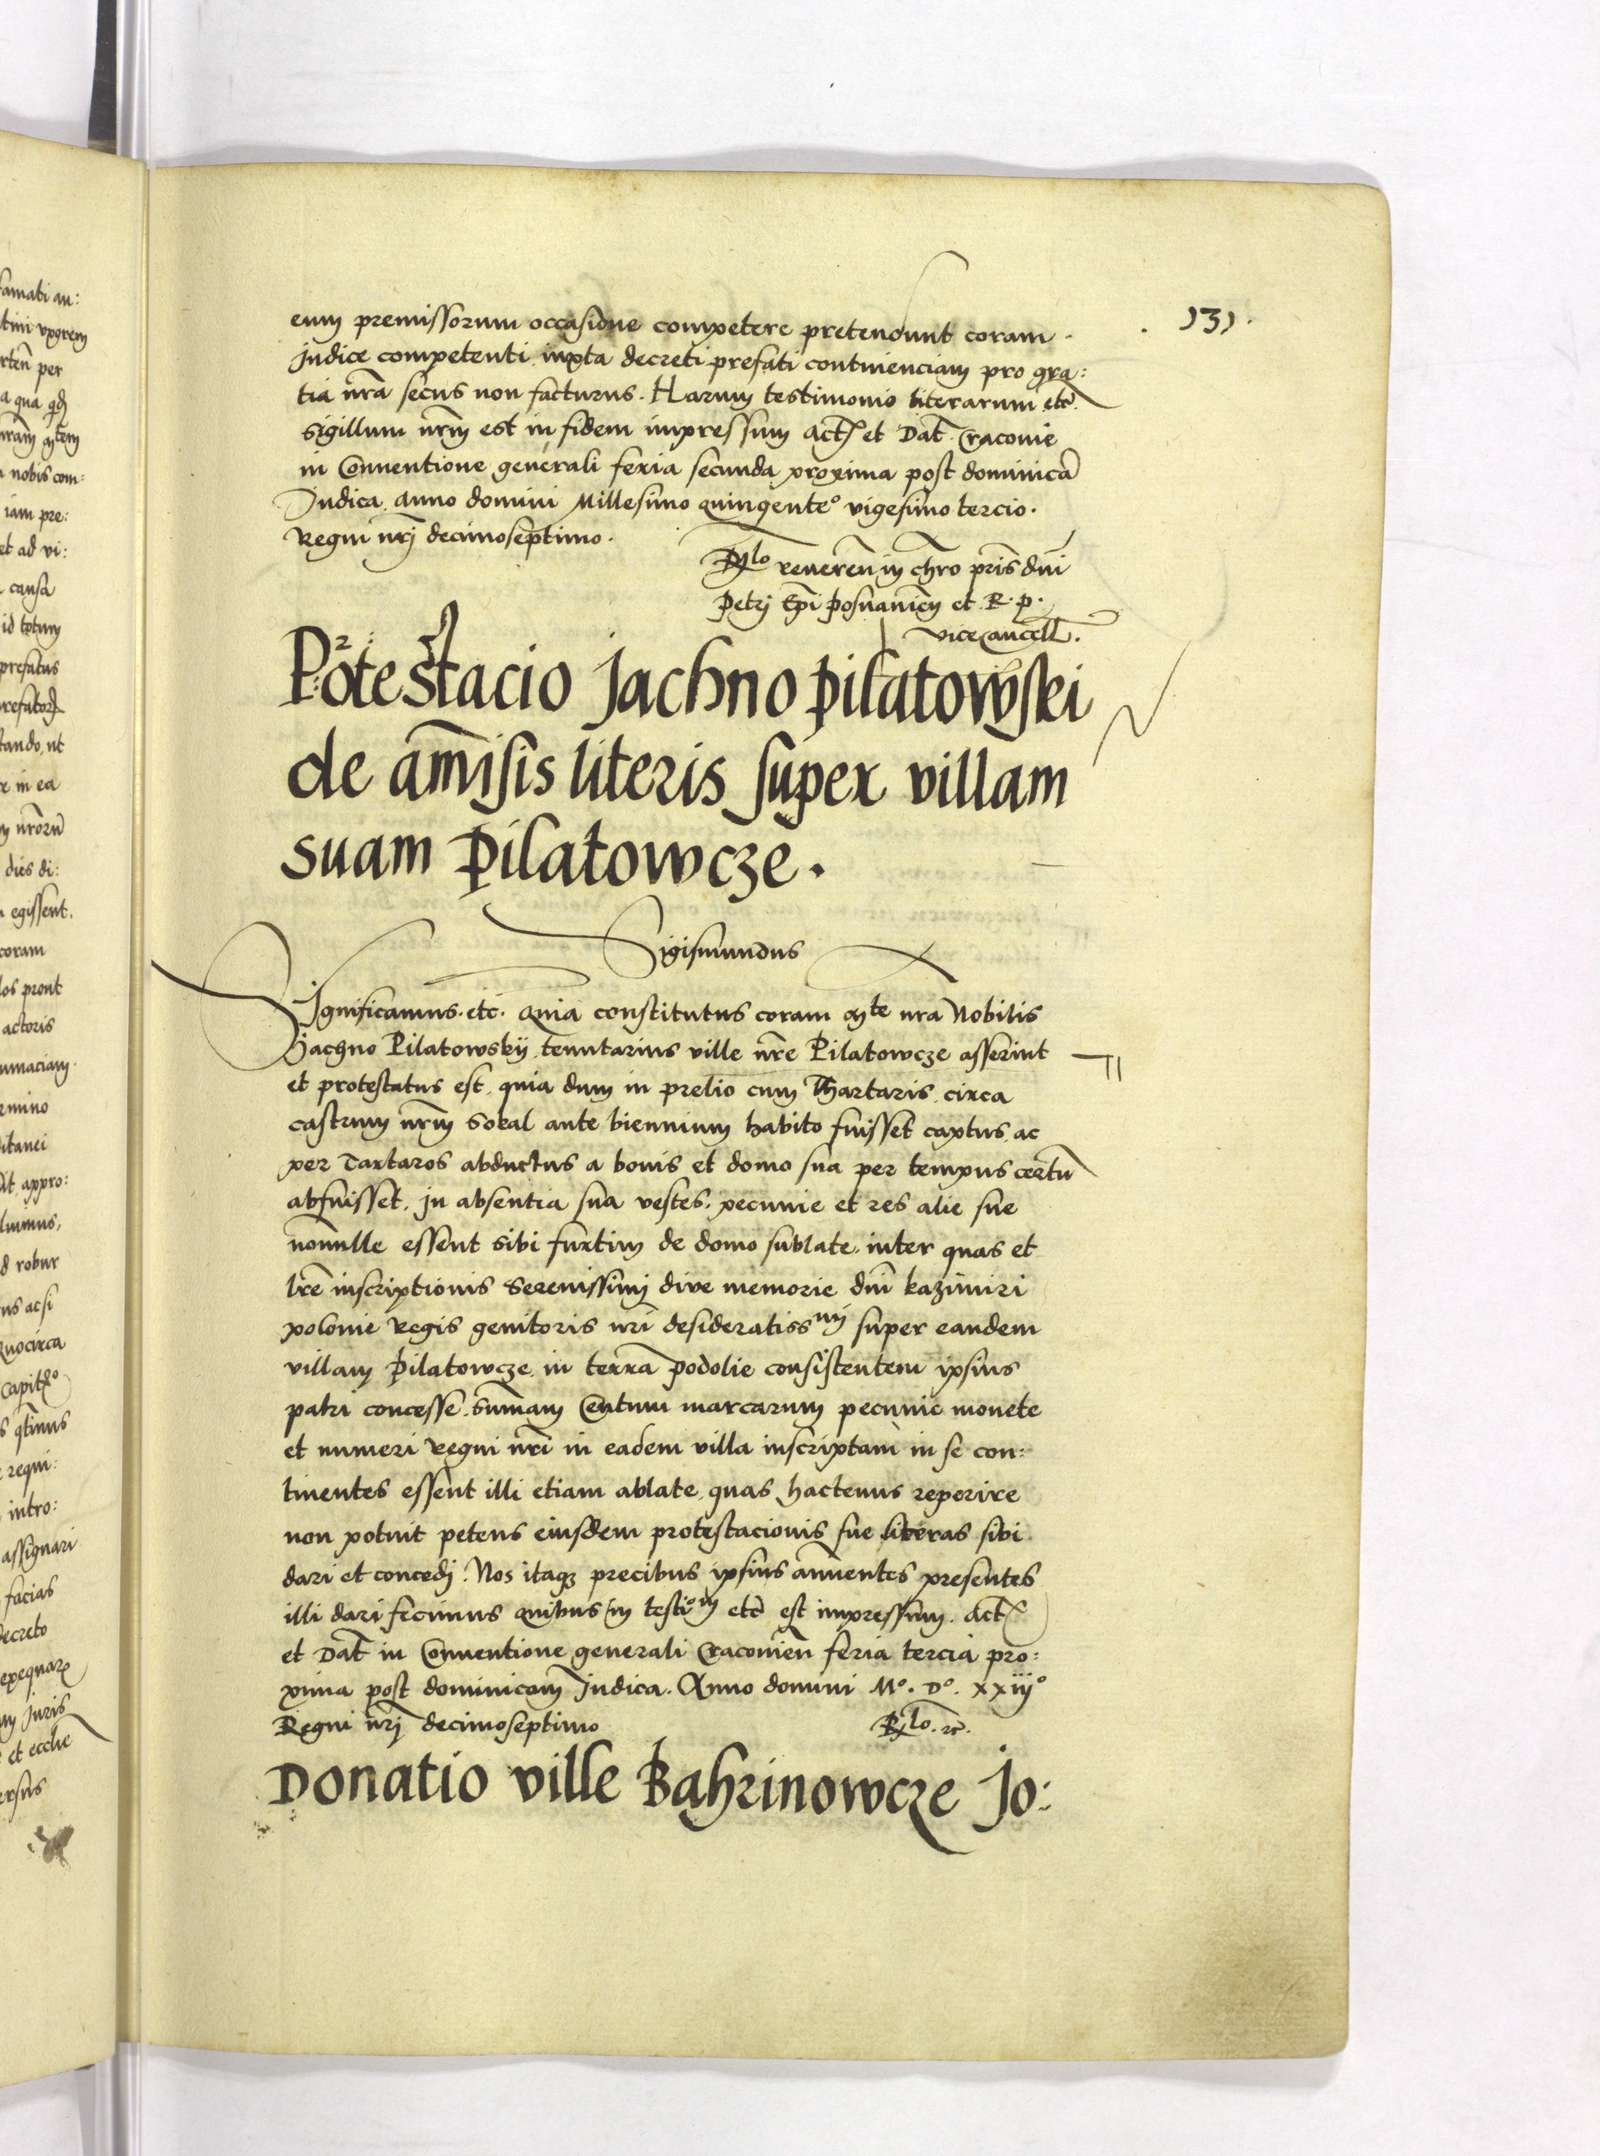 131.
eum premissorum occasione competere pretendunt coram
judice competenti iuxta decreti prefati continenciam pro gra:
tia nrã secus non facturus. Harum testimonio literarum etc̃
Sigillum nrm̃ est in fidem impressum Act. et Dat̃ Cracovie
in Conventione generali feria secunda proxima post dominicã
Judica, anno domini Millesimo quingenteᵒ vigesimo tercio.
Regni nrĩ decimoseptimo.
Rlo reveren̄ in chro pris̃ dni
Petri Epĩ Posnanien̄ et R. P.
Vicecancell̃.
Protestacio Jachno Pilatowski
de am̃isis literis super villam
suam Pilatowcze.
Sigismundus
Significamus. etc. Quia constitutus coram mte nra Nobilis
Jachno Pilatowskij, tenutarius ville nrẽ Pilatowcze asseruit
et protestatus est, quia dum in prelio cum Thartaris, circa
castrum nrm̃ Sokal ante biennium habito fuisset captus, ac
per Tartaros abductus a bonis et domo sua per tempus certũ
abfuisset, in absentia sua vestes, pecunie et res alie sue
nonnulle essent sibi furtim de domo sublate, inter quas et
lrẽ inscriptionis Serenissimi dive memorie dnĩ Kazimiri
Polonie Regis genitoris nrĩ desideratissmi super eandem
villam Pilatowcze in terra Podolie consistentem ipsius
patri concesse, sum̃am Centum marcarum pecunie monete
et numeri Regni nrĩ in eadem villa inscriptam in se con:
tinentes essent illi etiam ablate, quas hactenus reperire
non potuit petens eiusdem protestacionis sue literas sibi
dari et concedi. Nos itaqꝫ precibus ipsius an̄uentes presentes
illi dari fecimus quibus in testiom etc̃ est impressum. Act.
et Dat̃ in Conventione generali Cracovien̄ feria tercia pro:
xima post dominicam Judica. Anno domini Mᵒ. Dᵒ. xxiijᵒ
Regni nrĩ decimoseptimo Rlo. ꝛc̃.
Donatio ville Bahrinowcze Jo: